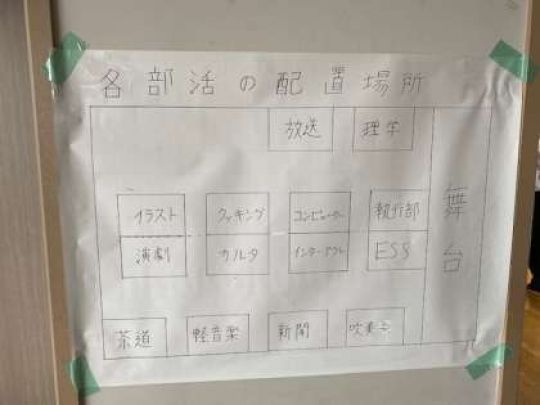 各部活の配置場所
放送 理学
イラスト クッキング コンピューター 執行部
演劇 カルタ インターアクト ESS
舞台
茶道 軽音楽 新聞 吹奏楽